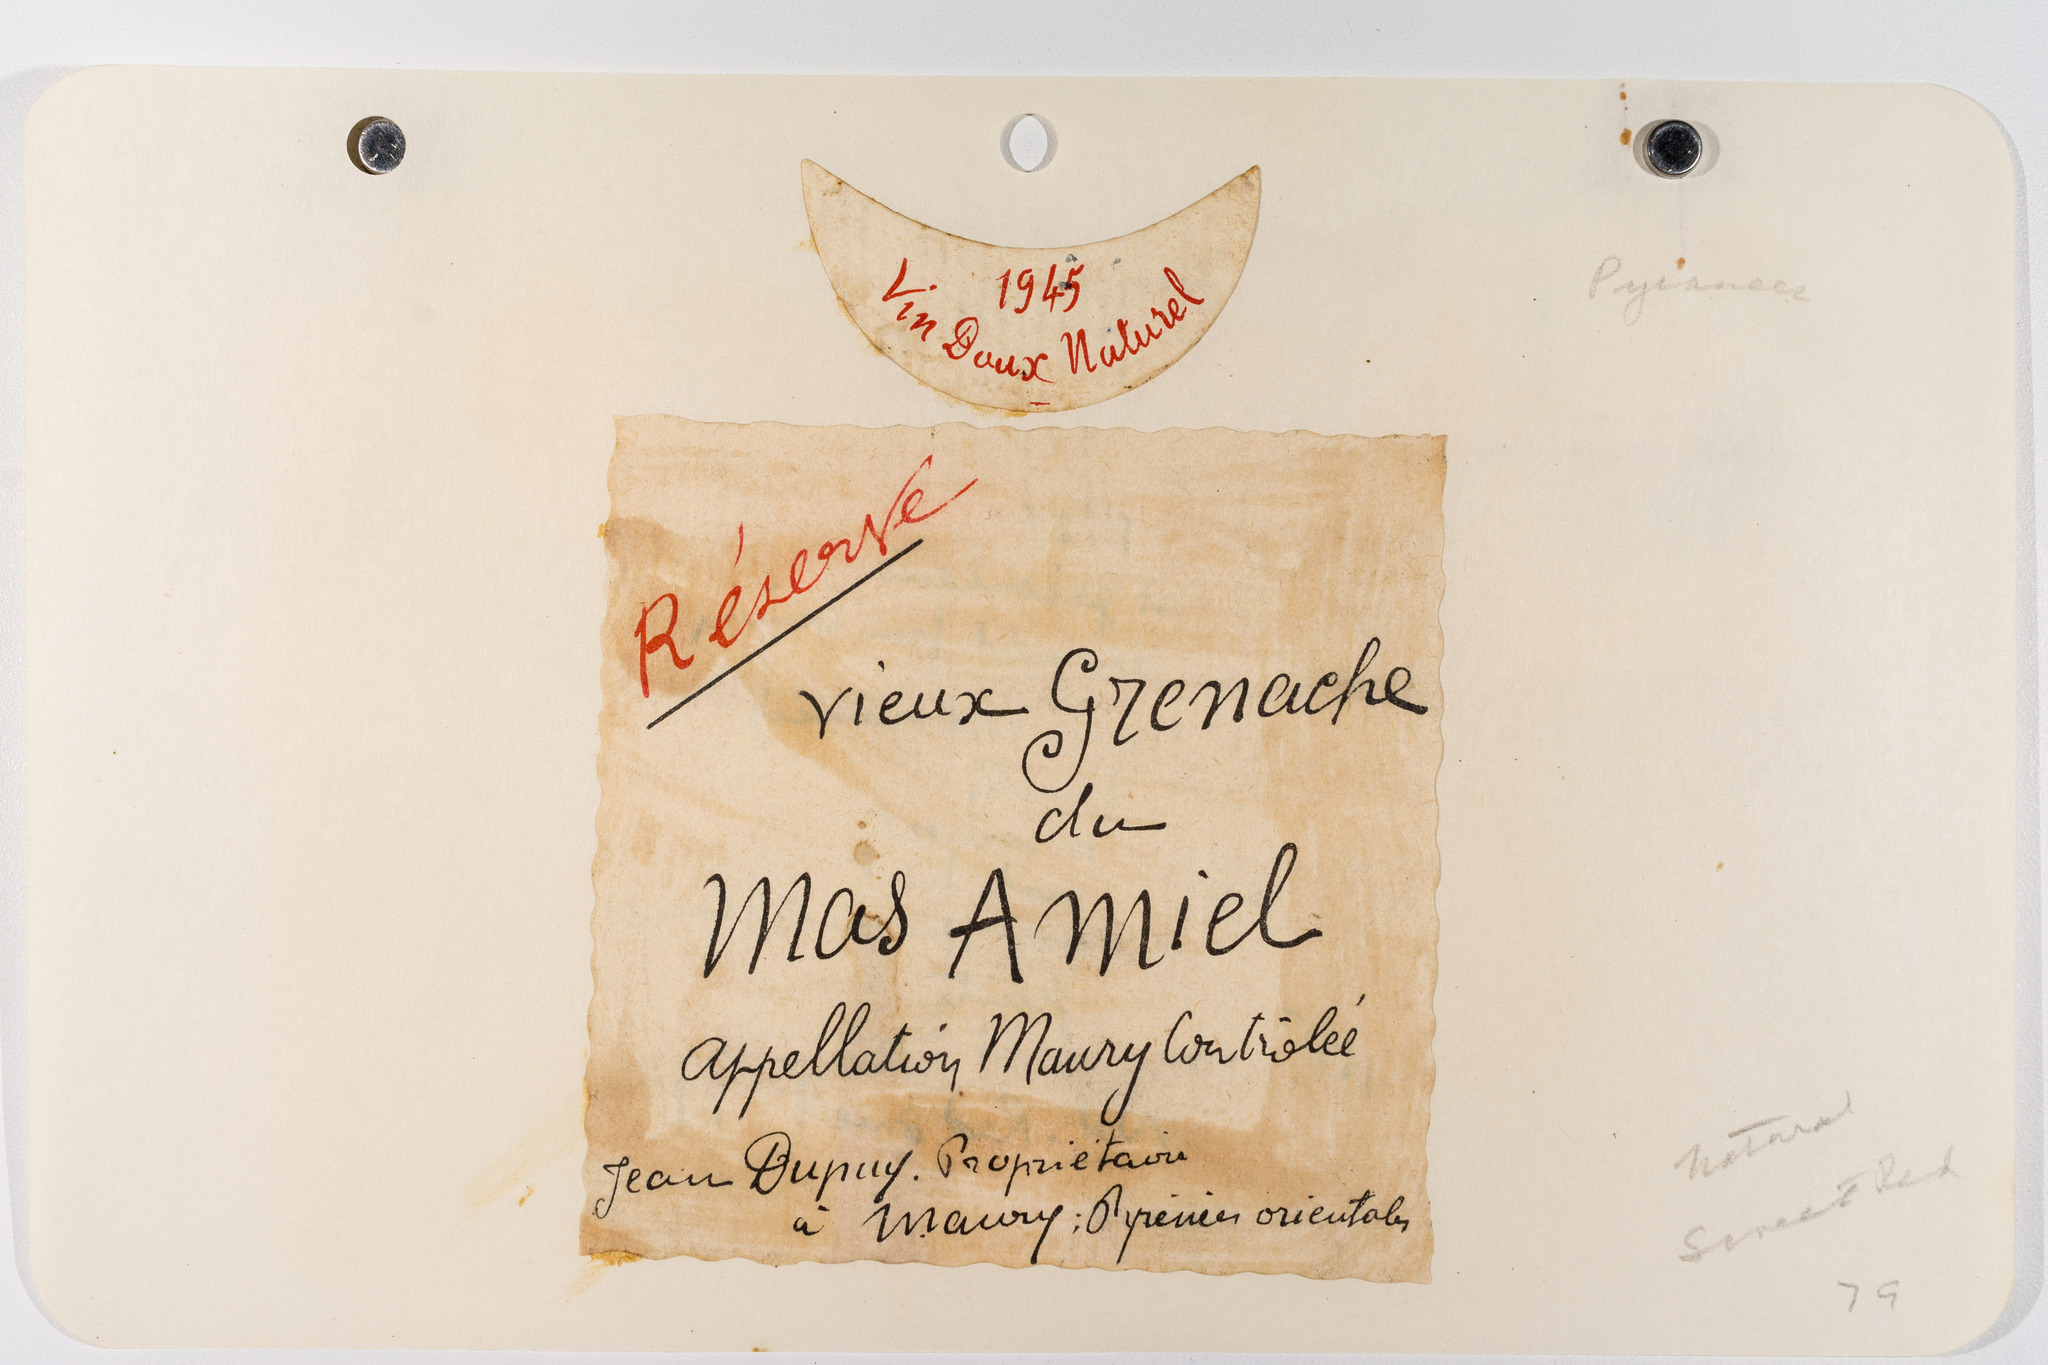 1945
Vin Doux Naturel
Pyranees
Réserve
vieux Grenache
du
Mas Amiel
Appellation Maury Contrôlée
Jean Dupuy. Propriétaire
à Maury; Pyrénées orientales
Natural
Sweet Red
79